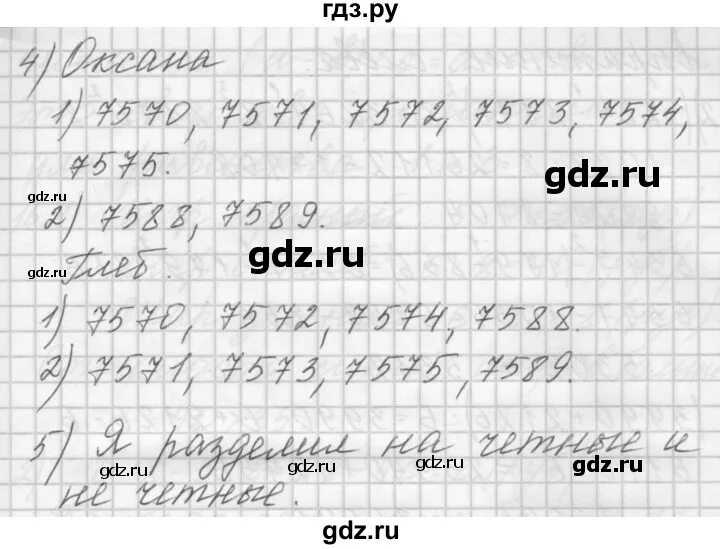 гдз.ру
4) Оксана
1) 7570, 7571, 7572, 7573, 7574,
7575.
gdz.ru
gdz.ru
2) 7588, 7589.
gdz.ru
gdz.ru
Глеб.
1) 7570, 7572, 7574, 7588.
2) 7571, 7573, 7575, 7589.
5) Я разделил на четные и
gdz.ru
gdz.ru
gdz.ru
не четные.
gdz.ru